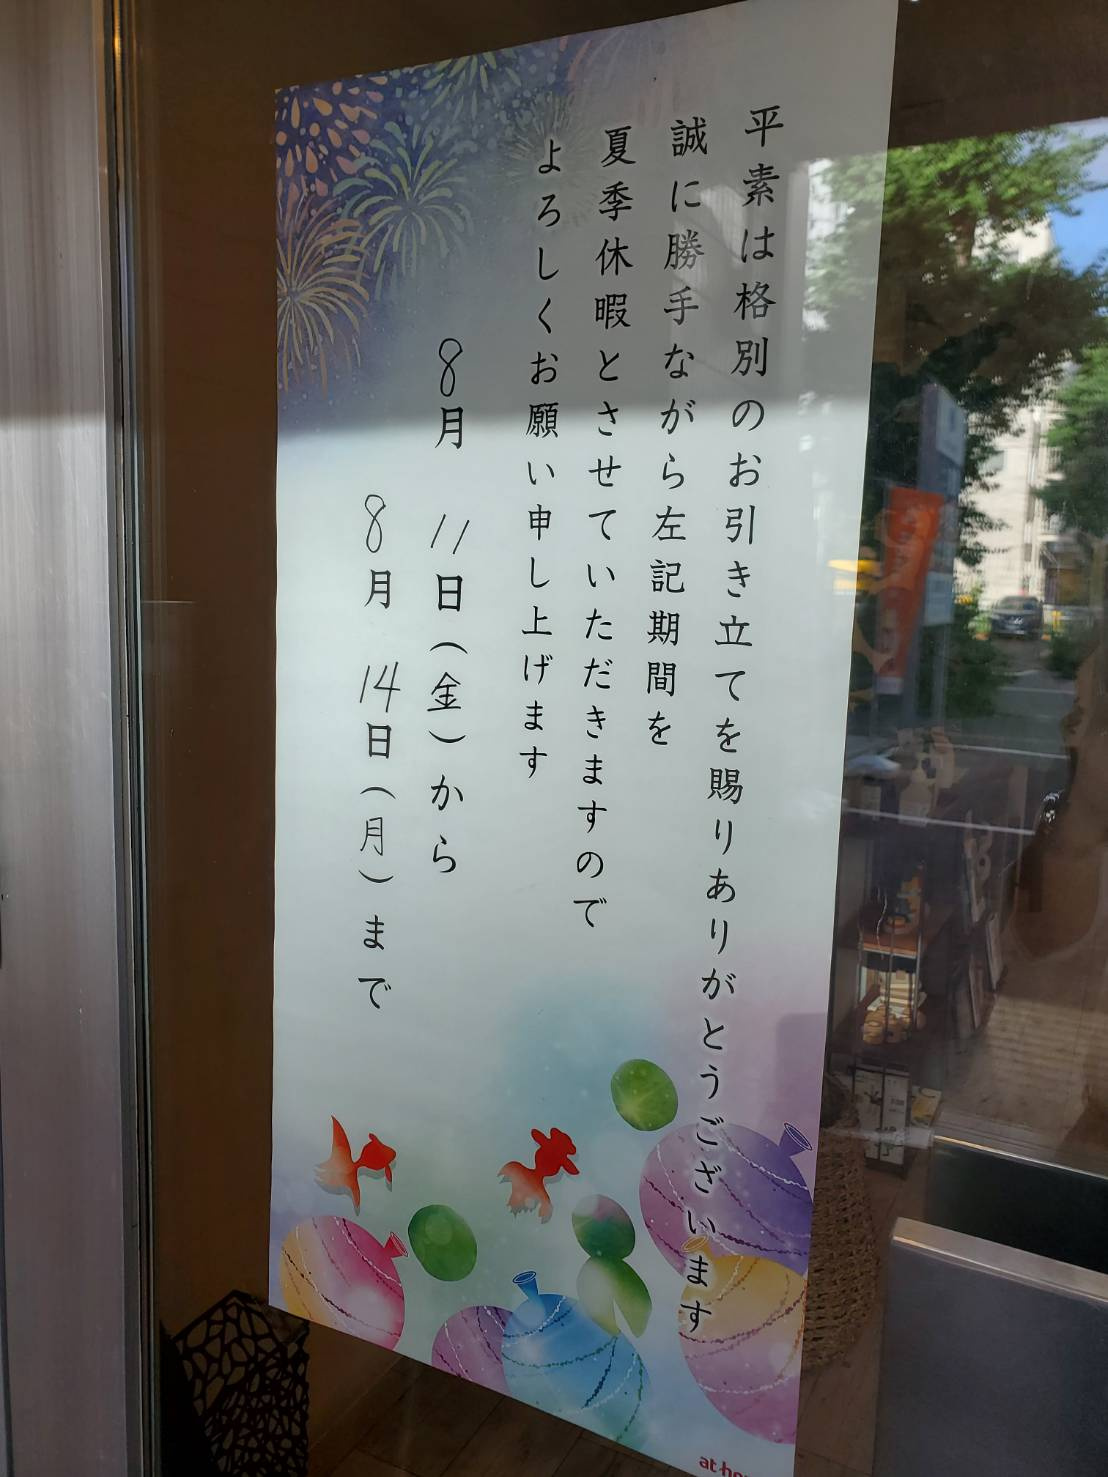 平素は格別のお引き立てを賜りありがとうございます
誠に勝手ながら左記期間を
夏季休暇とさせていただきますので
よろしくお願い申し上げます
8月 11日(金)から
8月 14日(月)まで